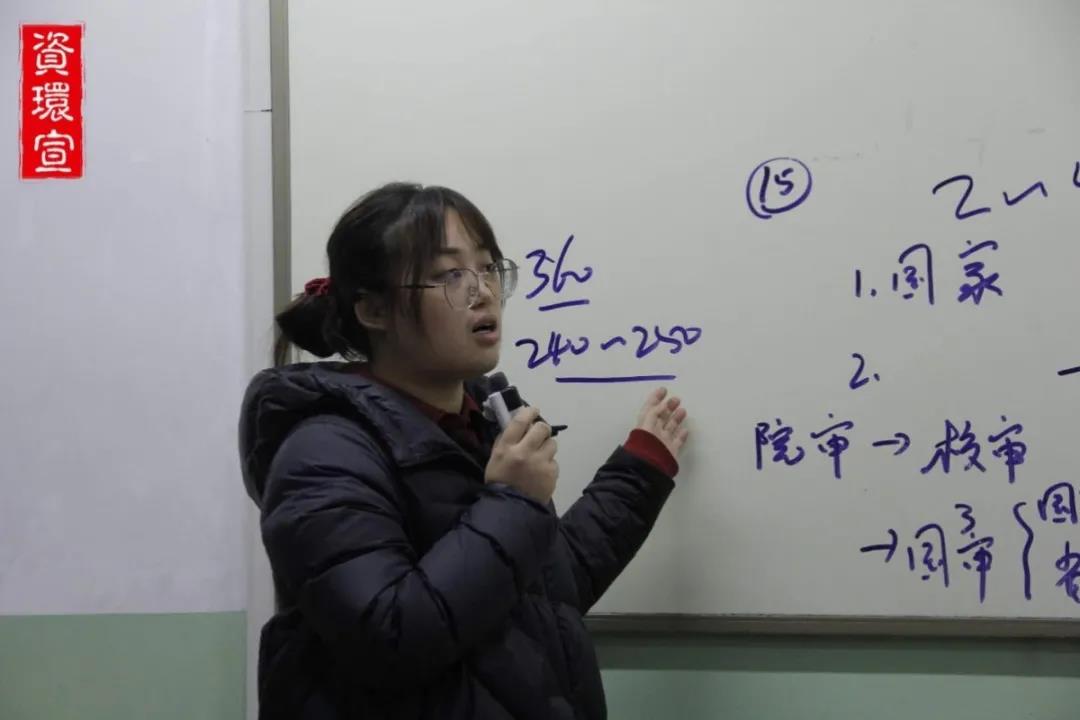 資環宣
360
240~250
⑮
2~
1.国家
2.
院审→校审
→国审
3
国
省